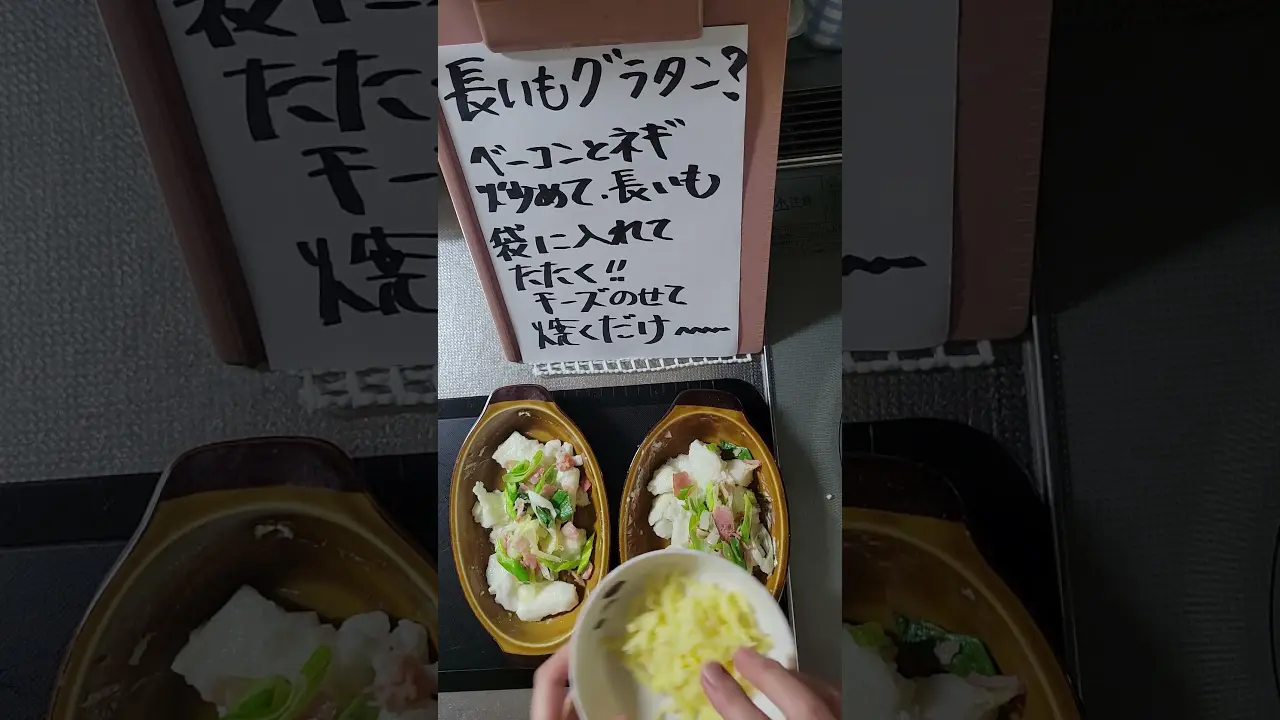 長いもグラタン?
ベーコンとネギ
炒めて、長いも
袋に入れて
たたく!!
チーズのせて
焼くだけ〜